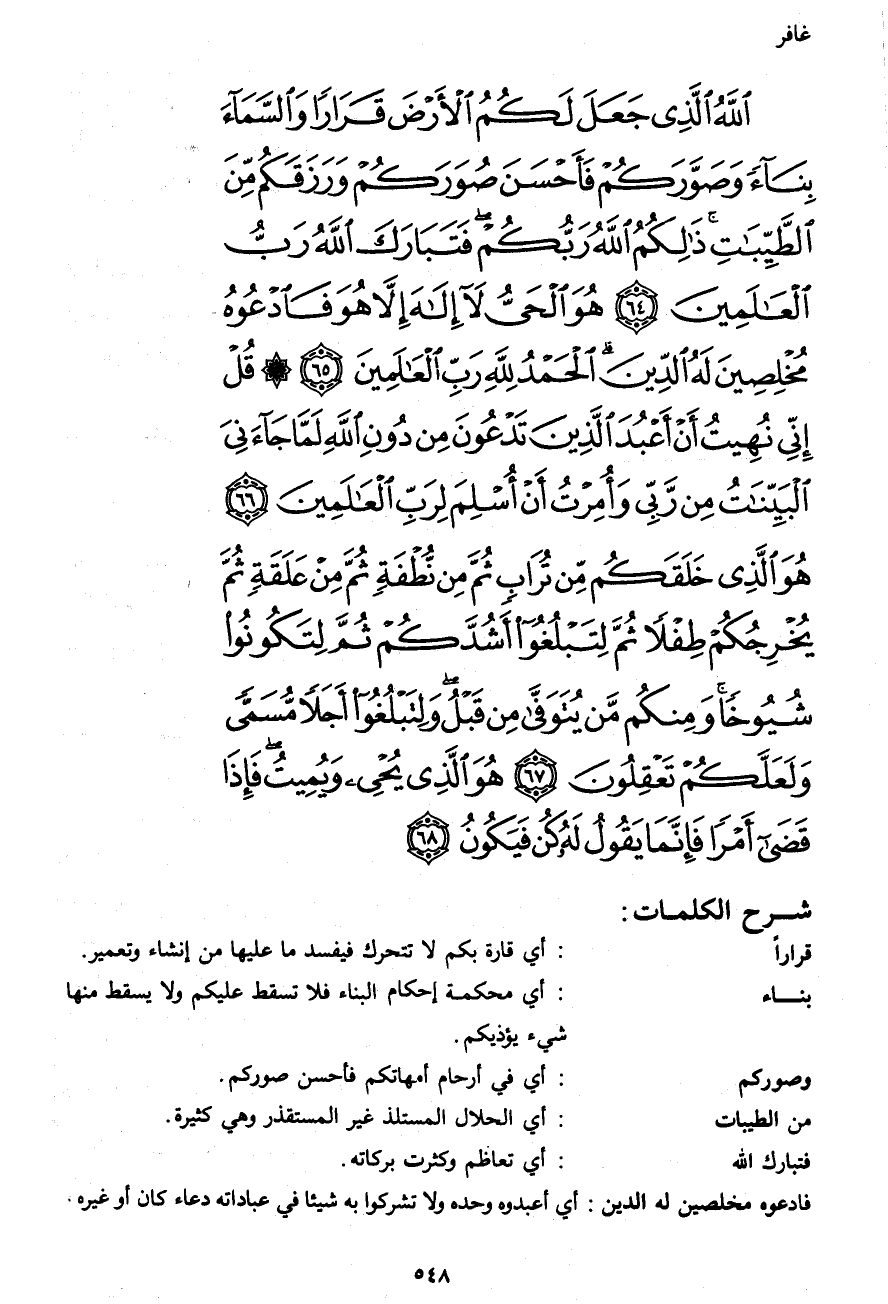 غافر
ٱللَّهُ ٱلَّذِى جَعَلَ لَكُمُ ٱلْأَرْضَ قَرَارًا وَٱلسَّمَآءَ
بِنَآءً وَصَوَّرَكُمْ فَأَحْسَنَ صُوَرَكُمْ وَرَزَقَكُم مِّنَ
ٱلطَّيِّبَٰتِ ۚ ذَٰلِكُمُ ٱللَّهُ رَبُّكُمْ ۖ فَتَبَارَكَ ٱللَّهُ رَبُّ
ٱلْعَٰلَمِينَ ٦٤ هُوَ ٱلْحَىُّ لَآ إِلَٰهَ إِلَّا هُوَ فَٱدْعُوهُ
مُخْلِصِينَ لَهُ ٱلدِّينَ ۗ ٱلْحَمْدُ لِلَّهِ رَبِّ ٱلْعَٰلَمِينَ ٦٥ ۞ قُلْ
إِنِّى نُهِيتُ أَنْ أَعْبُدَ ٱلَّذِينَ تَدْعُونَ مِن دُونِ ٱللَّهِ لَمَّا جَآءَنِىَ
ٱلْبَيِّنَٰتُ مِن رَّبِّى وَأُمِرْتُ أَنْ أُسْلِمَ لِرَبِّ ٱلْعَٰلَمِينَ ٦٦
هُوَ ٱلَّذِى خَلَقَكُم مِّن تُرَابٍ ثُمَّ مِن نُّطْفَةٍ ثُمَّ مِنْ عَلَقَةٍ ثُمَّ
يُخْرِجُكُمْ طِفْلًا ثُمَّ لِتَبْلُغُوٓا۟ أَشُدَّكُمْ ثُمَّ لِتَكُونُوا۟
شُيُوخًا ۚ وَمِنكُم مَّن يُتَوَفَّىٰ مِن قَبْلُ ۖ وَلِتَبْلُغُوٓا۟ أَجَلًا مُّسَمًّى
وَلَعَلَّكُمْ تَعْقِلُونَ ٦٧ هُوَ ٱلَّذِى يُحْىِۦ وَيُمِيتُ ۖ فَإِذَا
قَضَىٰٓ أَمْرًا فَإِنَّمَا يَقُولُ لَهُۥ كُن فَيَكُونُ ٦٨
شرح الكلمات :
قراراً : أي قارة بكم لا تتحرك فيفسد ما عليها من إنشاء وتعمير.
بناء : أي محكمة إحكام البناء فلا تسقط عليكم ولا يسقط منها
شيء يؤذيكم.
وصوركم : أي في أرحام أمهاتكم فأحسن صوركم.
من الطيبات : أي الحلال المستلذ غير المستقذر وهي كثيرة.
فتبارك الله : أي تعاظم وكثرت بركاته.
فادعوه مخلصين له الدين : أي أعبدوه وحده ولا تشركوا به شيئا في عباداته دعاء كان أو غيره.
٥٤٨